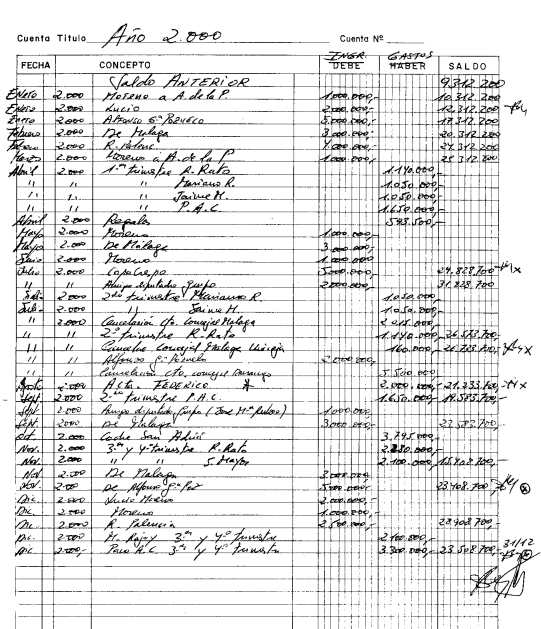 Cuenta Titulo Año 2.000 Cuenta Nº
INGR. GASTOS
FECHA CONCEPTO DEBE HABER SALDO
Saldo ANTERIOR 9.312.200
Enero 2.000 Moreno a A. de la P. 1.000.000,- 10.312.200
Enero 2.000 Lucio 2.000.000,- 12.312.200
Enero 2.000 Alfonso Gª 5.000.000,- 17.312.200
Febrero 2.000 De Malaga 3.000.000,- 20.312.200
Febrero 2.000 R. Palenc. 4.000.000,- 24.312.200
Marzo 2.000 Moreno a A. de la P 1.000.000,- 25.312.200
Abril 2.000 1.er trimestre R. Rato 1.140.000,-
" " " Mariano R. 1.050.000,-
" " " Jaime M. 1.050.000,-
" " " P.A.C. 1.650.000,-
Abril 2.000 Regalos 593.500,-
Mayo 2.000 Moreno 1.000.000,-
Mayo 2.000 De Málaga 3.000.000,-
2.000 Moreno 1.000.000
Julio 2.000 5.000.000,- 29.828.700
" " Amigo diputado 2.000.000,- 31.828.700
Julio 2.000 2do trimestre Mariano R. 1.050.000,-
Julio 2.000 " Jaime M. 1.050.000,-
" 2.000 Cancelación cto. concejal Malaga
" " 2º trimestre R. Rato 1.140.000,- 26.583.700
" " concejal Malaga
" " Alfonso Gª 2.000.000,-
" " Cancelación cto. concejal Durango 5.500.000
Agosto 2.000 Acta. FEDERICO * 2.000.000,- 21.233.700,-
Sept. 2.000 2do trimestre P.A.C. 1.650.000,- 19.583.700,-
Sept. 2.000 Amigo diputado (José Mª) 1.000.000,-
Sept. 2.000 De Malaga 3.000.000,- 23.583.700,-
Oct. 2.000 Coche San Adrián 3.795.000,-
Nov. 2.000 3er y 4º trimestre R. Rato 2.280.000,-
Nov. 2.000 " " S. Mayor 2.100.000,- 15.408.700,-
Nov. 2.000 De Malaga 3.000.000,-
Nov. 2.000 De Alfonso Gª Poz 5.000.000,- 23.408.700,-
Dic. 2.000 2.000.000,-
Dic. 2.000 Moreno 1.000.000,-
Dic. 2.000 R. Palencia 2.500.000,- 28.908.700,-
Dic. 2.000 M. Rajoy 3er y 4º trimestre 2.100.000,-
31/12
Dic. 2.000,- Paco A.C. 3er y 4º trimestre 3.300.000,- 23.508.700,-